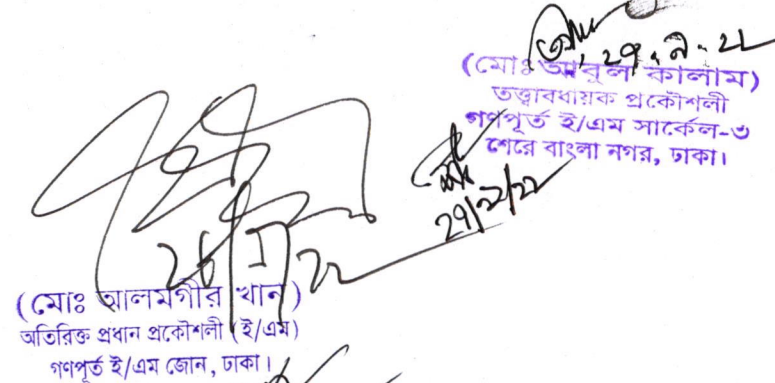 ২৭.৯.২২
(মোঃ আবুল কালাম)
তত্ত্বাবধায়ক প্রকৌশলী
গণপূর্ত ই/এম সার্কেল-৩
শেরে বাংলা নগর, ঢাকা।
(মোঃ আলমগীর খান)
অতিরিক্ত প্রধান প্রকৌশলী (ই/এম)
গণপূর্ত ই/এম জোন, ঢাকা।